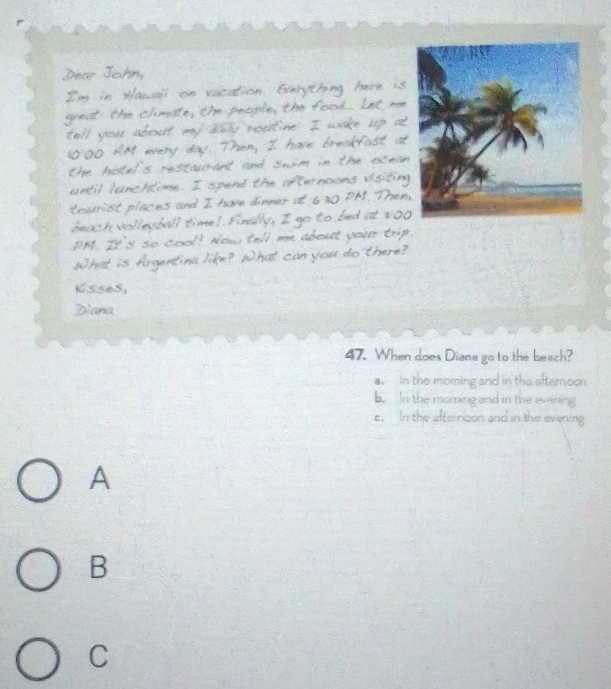 Dear John,
I'm in Hawaii on vacation. Everything here is
great: the climate, the people, the food... Let me
tell you about my daily routine: I wake up at
10:00 AM every day. Then, I have breakfast at
the hotel's restaurant and swim in the ocean
until lunchtime. I spend the afternoons visiting
tourist places and I have dinner at 6:30 PM. Then,
beach volleyball time! Finally, I go to bed at
PM. It's so cool! Now tell me about your trip.
What is Argentina like? What can you do there?
Kisses,
Diana
47. When does Diana go to the beach?
a. In the morning and in the afternoon
b. In the morning and in the evening
c. In the afternoon and in the evening
A
B
C